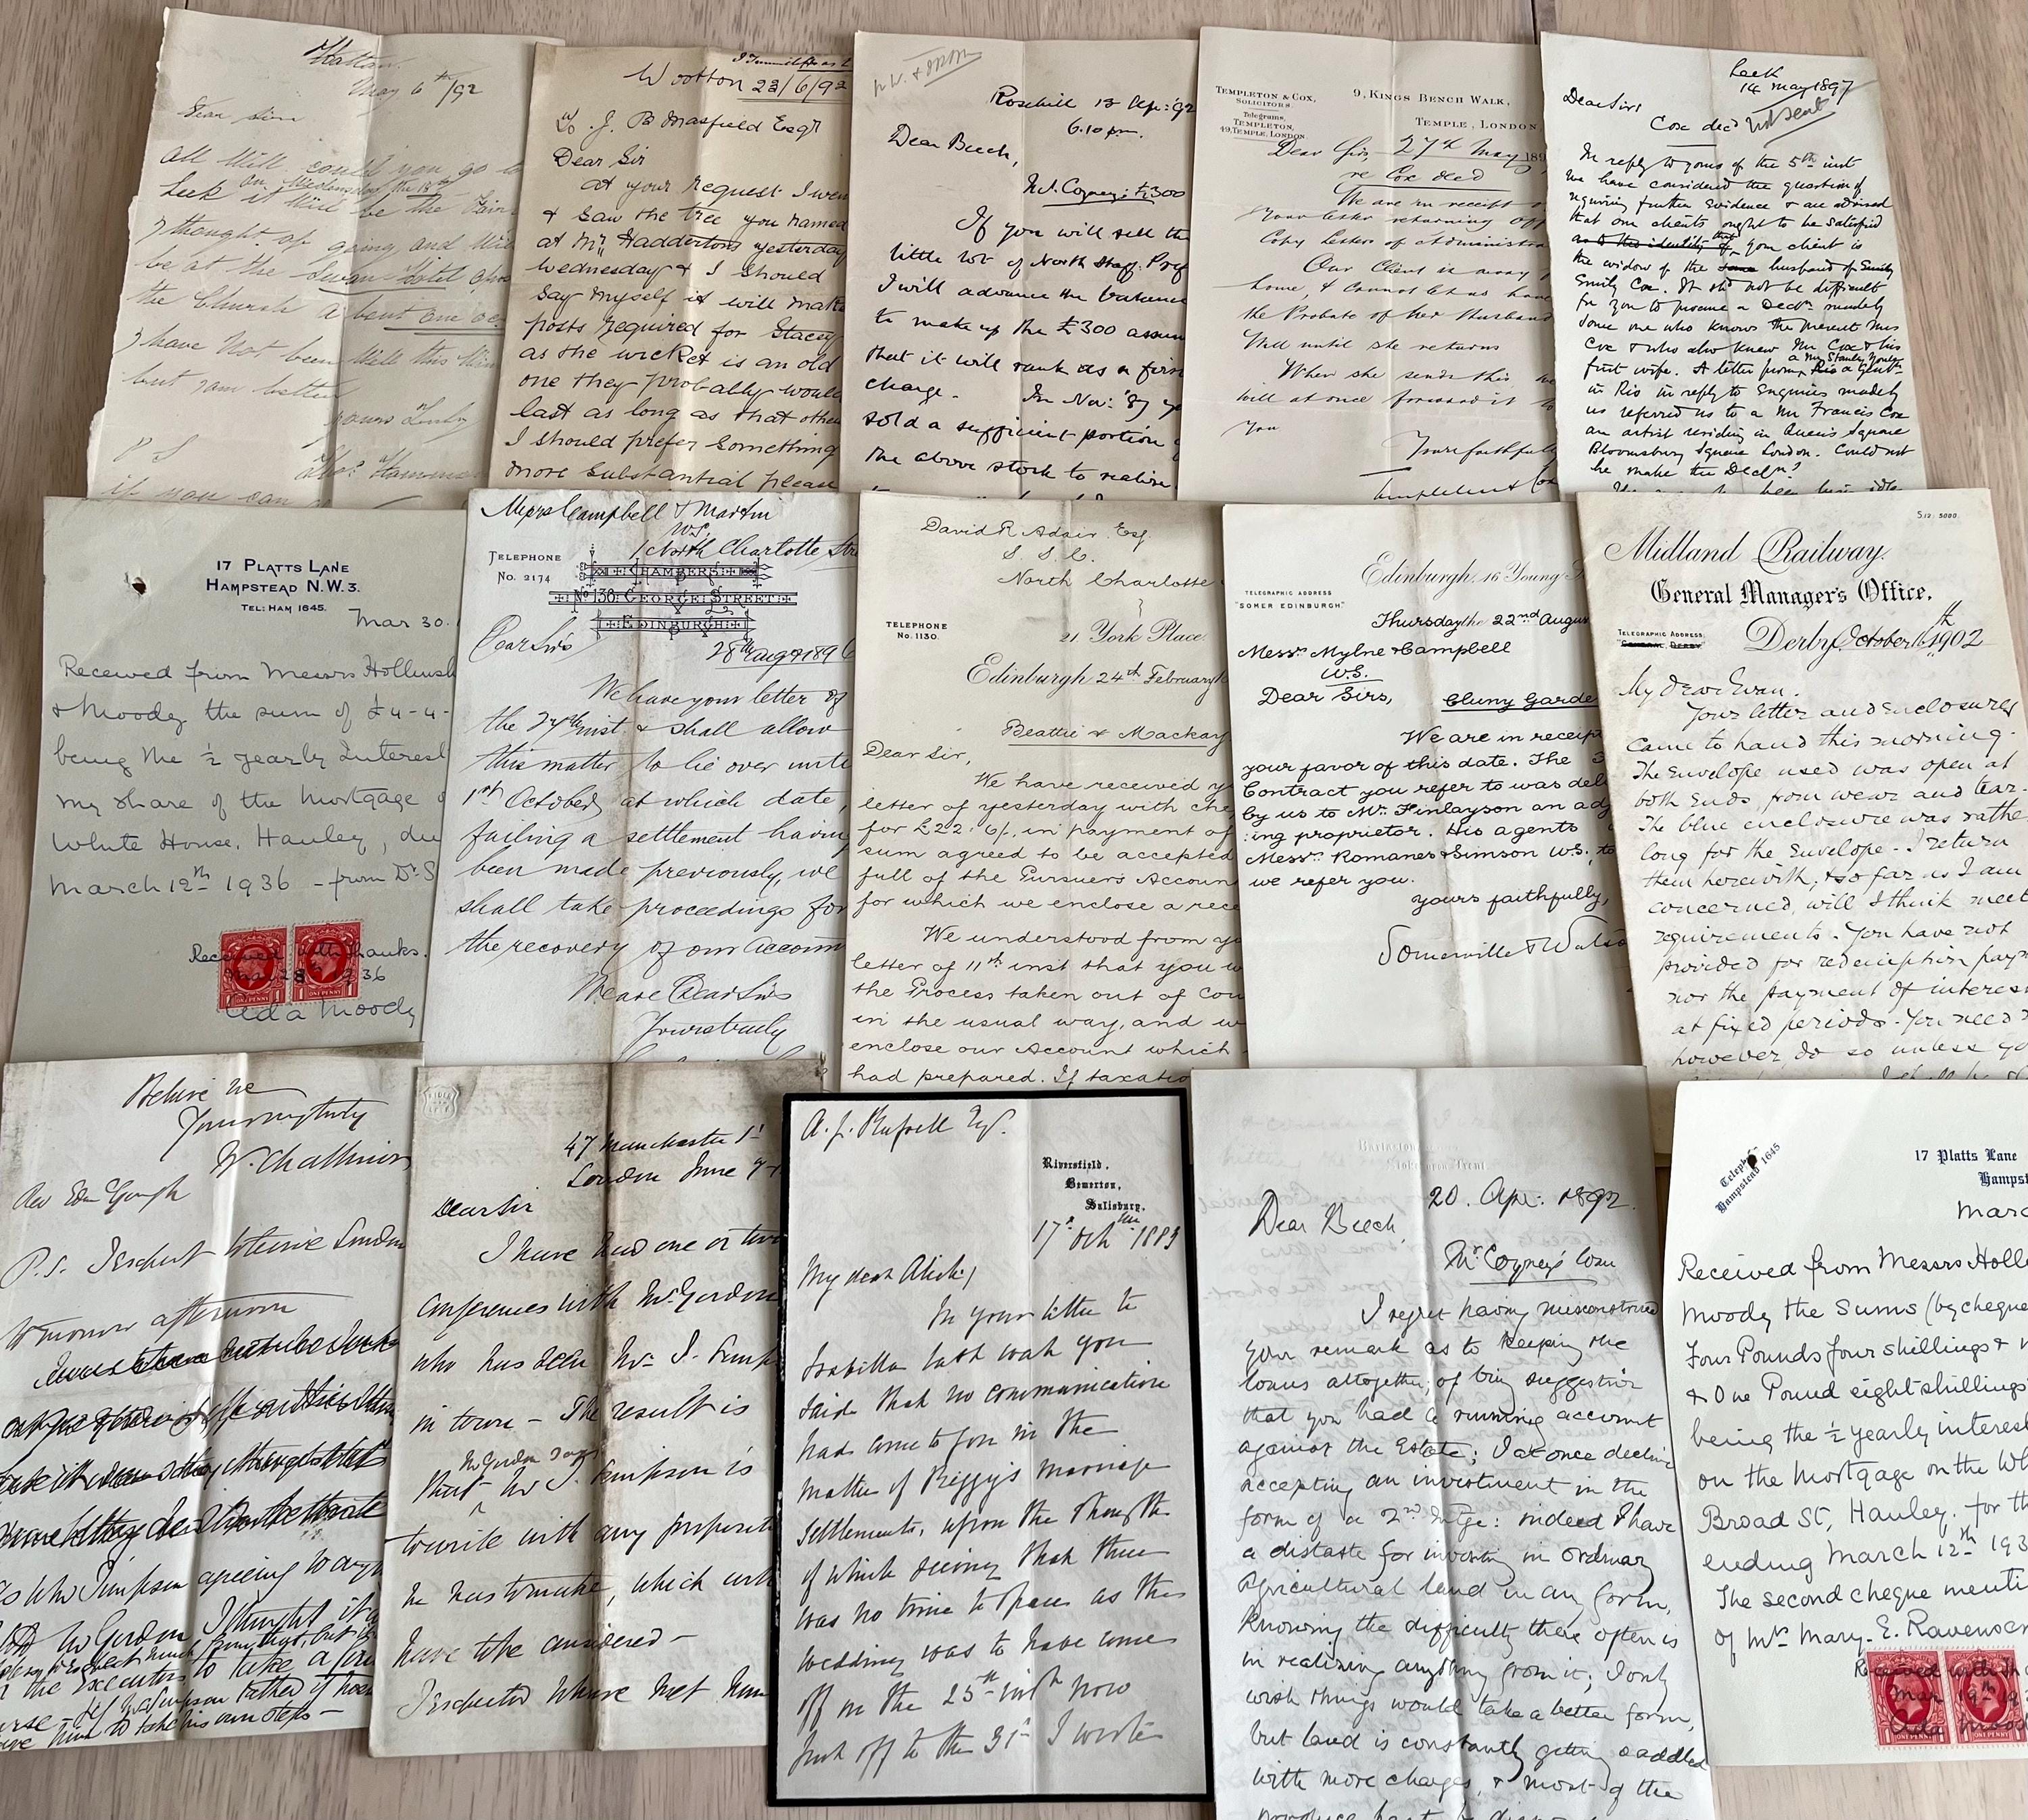 Hatton
May 6th/92
Dear Sir
all Well could you go to
Leek on Wednesday the 18th
it Will be the Fair
I thought of going and Will
be at the Swan Hotel
the Church about One
I have Not been Well this
but I am better
yours Truly
P S
if you can
Wootton 23/6/92
To J. B Masfield Esqr
Dear Sir
at your request I wen
& saw the tree you named
at Mr Haddertons yesterday
Wednesday & I should
say myself it will mak
posts required for Stacey
as the wicket is an old
one they probably would
last as long as that other
I should prefer something
more substantial please
Rosehill 12 Ap: 92
6.10 pm.
Dear Beech,
£300
If you will sell the
little lot of North Staff. Pref
I will advance the balance
to make up the £300 assum
that it will rank as a first
charge. In Nov: 89 yo
sold a sufficient portion o
the above stock to realise
TEMPLETON & COX,
SOLICITORS.
Telegrams,
TEMPLETON,
49, TEMPLE, LONDON.
9, KINGS BENCH WALK,
TEMPLE, LONDON
27th May 189
Dear Sir,
re Cox decd
We are in receipt o
your letter returning Off
Copy Letters of Administra
Our Client is away f
home, & cannot let us have
the Probate of her Husband
Will until she returns
When she sends this we
will at once forward it to
you
Yours faithfull
Templeton & Cox
Leek
14 May 1897
Not sent
Dear Sirs
Cox decd
In reply to yours of the 5th inst
we have considered the question of
requiring further evidence & are advised
that our clients ought to be satisfied
as to the identity of that your client is
the widow of the same husband of Emily
Emily Cox. It shd not be difficult
for you to procure a Decln made by
some one who knows the present Mrs
Cox & who also knew Mr Cox & his
first wife. A letter from a Mr Stanley Youle a Gentn
in Rio in reply to enquiries made by
us referred us to a Mr Francis Cox
an artist residing in Queens Square
Bloomsbury Square London. Could not
he make the Decln?
17 PLATTS LANE
HAMPSTEAD N.W.3.
TEL: HAM 1645.
Mar 30.
Received from Messrs Hollinsh
& Moody the sum of £4-4-
being the ½ yearly Interest
my share of the Mortgage o
White House, Hanley, du
March 12th 1936 - from Dr S
Received with thanks.
Mar 28th 1936
Ada Moody
ONE PENNY
ONE PENNY
Messrs Campbell & Martin
W.S.
1 North Charlotte Stre
TELEPHONE
No. 2174
CHAMBERS
No 138 GEORGE STREET
EDINBURGH
28th Aug 1896
Dear Sirs
We have your letter of
the 27th inst. & shall allow
this matter to lie over until
1st October, at which date,
failing a settlement having
been made previously, we
shall take proceedings for
the recovery of our account
We are Dear Sirs
Yours truly
David R Adair Esq.
S. S. C.
North Charlotte
TELEPHONE
No. 1130.
21 York Place
Edinburgh 24th February
Beattie v Mackay
Dear Sir,
We have received y
letter of yesterday with che
for £22:6/, in payment of
sum agreed to be accepted
full of the Pursuer's Accoun
for which we enclose a rece
We understood from yo
letter of 11th inst that you w
the Process taken out of Cou
in the usual way, and w
enclose our Account which
had prepared. If taxatio
Edinburgh, 16 Young S
TELEGRAPHIC ADDRESS
"SOMER EDINBURGH."
Thursday the 22nd Augus
Messrs Mylne & Campbell
W.S.
Dear Sirs,
Cluny Garde
We are in receip
your favor of this date. The
Contract you refer to was del
by us to Mr. Finlayson an adj
ing proprietor. His agents
Messrs Romanes & Simson W.S., to
we refer you.
yours faithfully,
Somerville & Watso
5,12, 5000.
Midland Railway.
General Manager's Office,
TELEGRAPHIC ADDRESS
"GENERAL, DERBY."
Derby October 16th 1902
My dear Evan.
Your letter and enclosures
came to hand this morning.
The Envelope used was open at
both ends, from wear and tear.
The blue enclosure was rathe
long for the envelope - I return
them herewith, & so far as I am
concerned, will I think meet
requirements. You have not
provided for redemption paym
nor the payment of interes
at fixed periods. You need n
however do so unless yo
Believe me
Yours very truly
W. Challinor
Rev Edm Gough
P.S. I expect to leave London
tomorrow afternoon
Mr Simpson agreeing to any
Mr Gordon I thought it
the Executors to take a firm
if Mr Simpson father
him to take his own steps -
47 Manchester St
London June 7
Dear Sir
I have had one or two
conferences with Mr Gordon
who has seen Mr J. Simps
in town - The result is
Mr Gordon says
that Mr J. Simpson is
to write with any propositi
he has to make, which will
have to be considered -
I expected to have met him
A. J. Russell Esq.
Riversfield,
Bemerton,
Salisbury.
17th Octr 1883
My dear Alick,
In your letter to
Isabella last week you
said that no communication
had come to you in the
matter of Peggy's marriage
settlements, upon the strength
of which seeing that there
was no time to spare as the
wedding was to have come
off on the 25th inst now
put off to the 31st I wrote
20. Apr: 1892.
Dear Beech,
Mr. Coyney's loan
I regret having misconstrued
your remark as to keeping the
loans altogether, of being suggestive
that you had a running account
against the Estate; I at once decline
accepting an investment in the
form of a 2nd Mtge: indeed I have
a distaste for investing in ordinary
agricultural land in any form,
knowing the difficulty there often is
in realising anything from it; I only
wish things would take a better form,
but land is constantly getting saddled
with more charges, & most of the
Telephone
Hampstead 1645
17 Platts Lane
Hampst
Marc
Received from Messrs Holl
Moody the sums (by cheque
Four Pounds four shillings &
& One Pound eight shillings
being the ½ yearly interest
on the Mortgage on the Wh
Broad St, Hanley. for th
ending March 12th 193
The second cheque menti
of Mrs Mary. E. Ravensc
Received with th
Mar 19th 19
Ada Mood
ONE PENNY
ONE PENNY